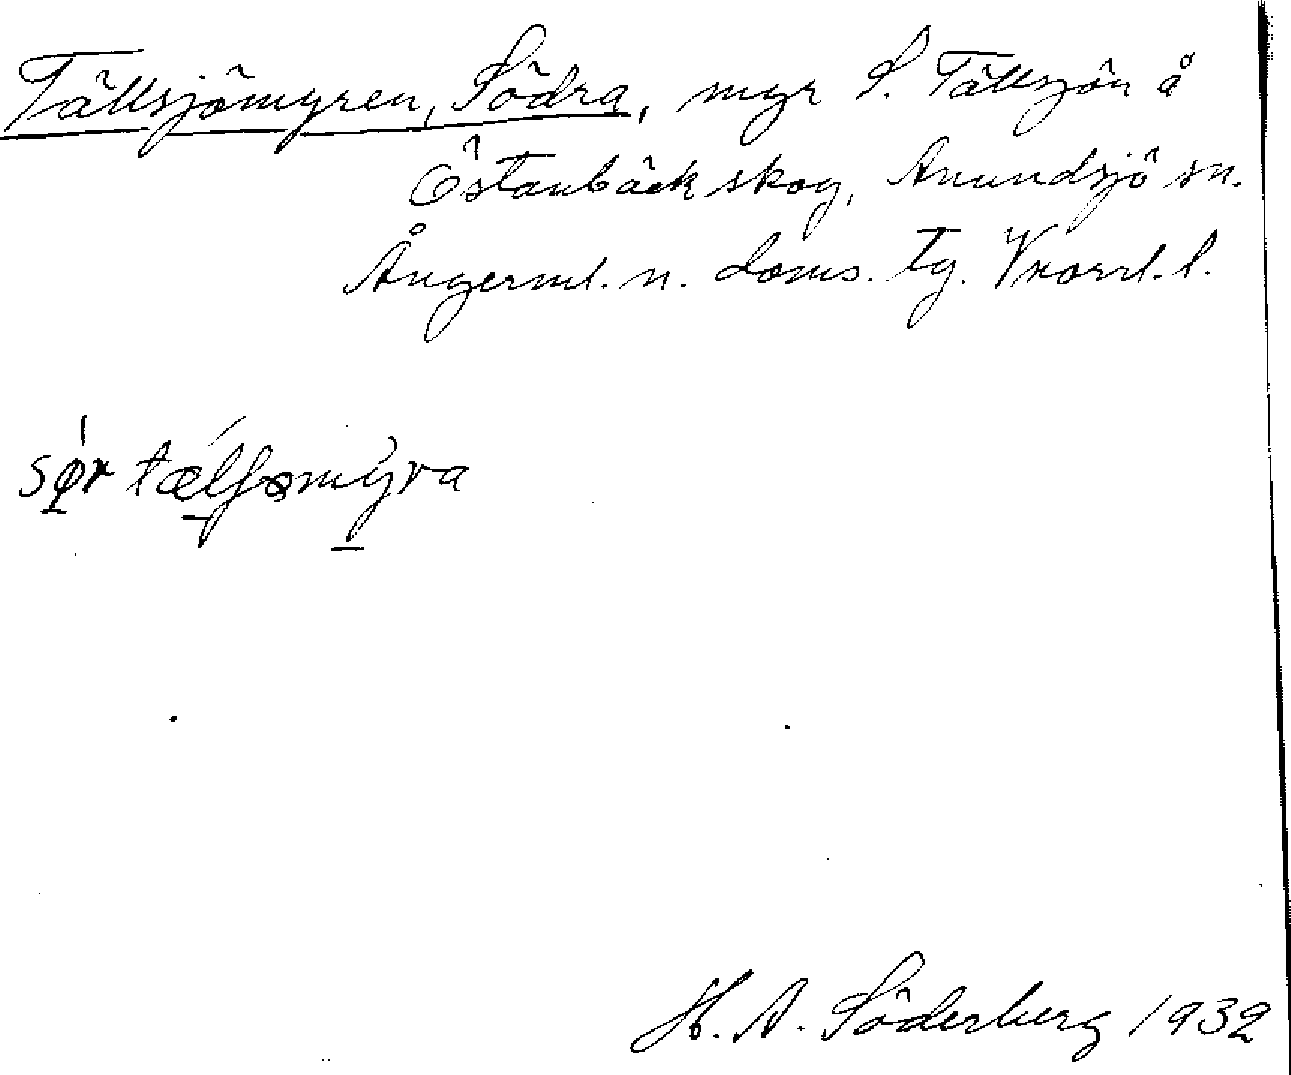 Tällsjömyren, Södra, myr S. Tällsjön å
Östanbäck skog, Anundsjö sn.
Ångerml. n. doms. tg. Vnorrl. l.
sør tælʃømyra
H. A. Söderberg 1932